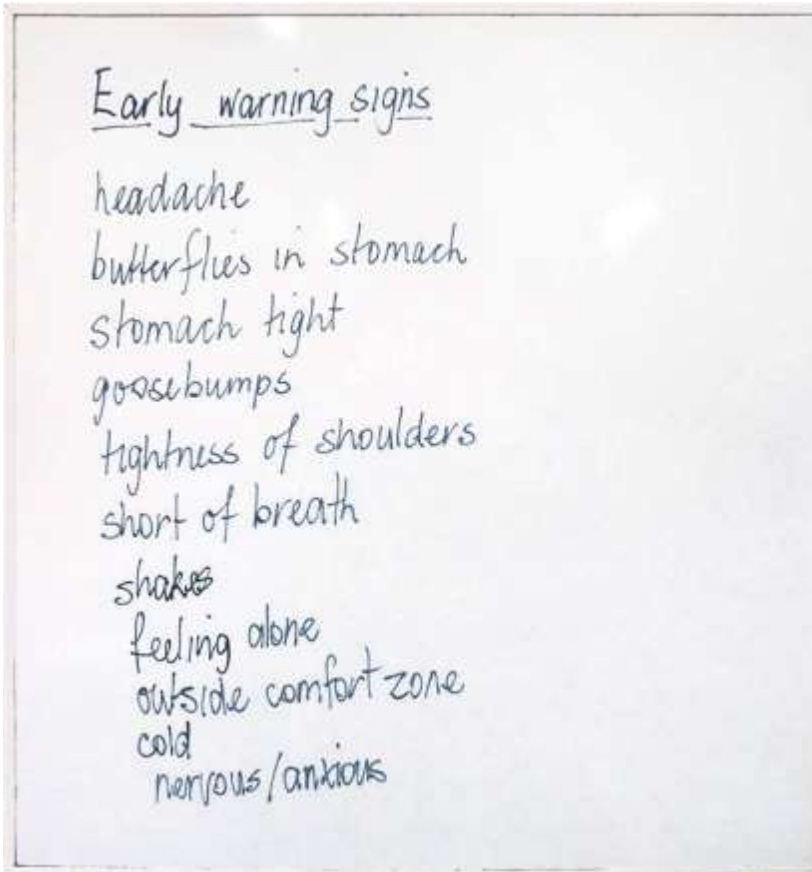 Early warning signs
headache
butterflies in stomach
stomach tight
goosebumps
tightness of shoulders
short of breath
shakes
feeling alone
outside comfort zone
cold
nervous/anxious